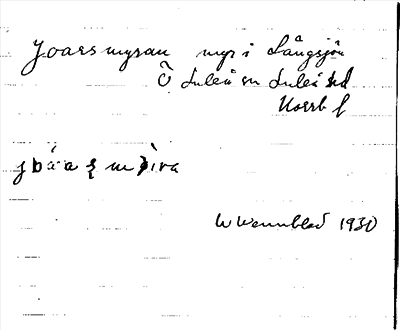 Joarsmyran myr i Långsjön
Ö Luleå sn Luleå td
Norrb l
W Wennblad 1930